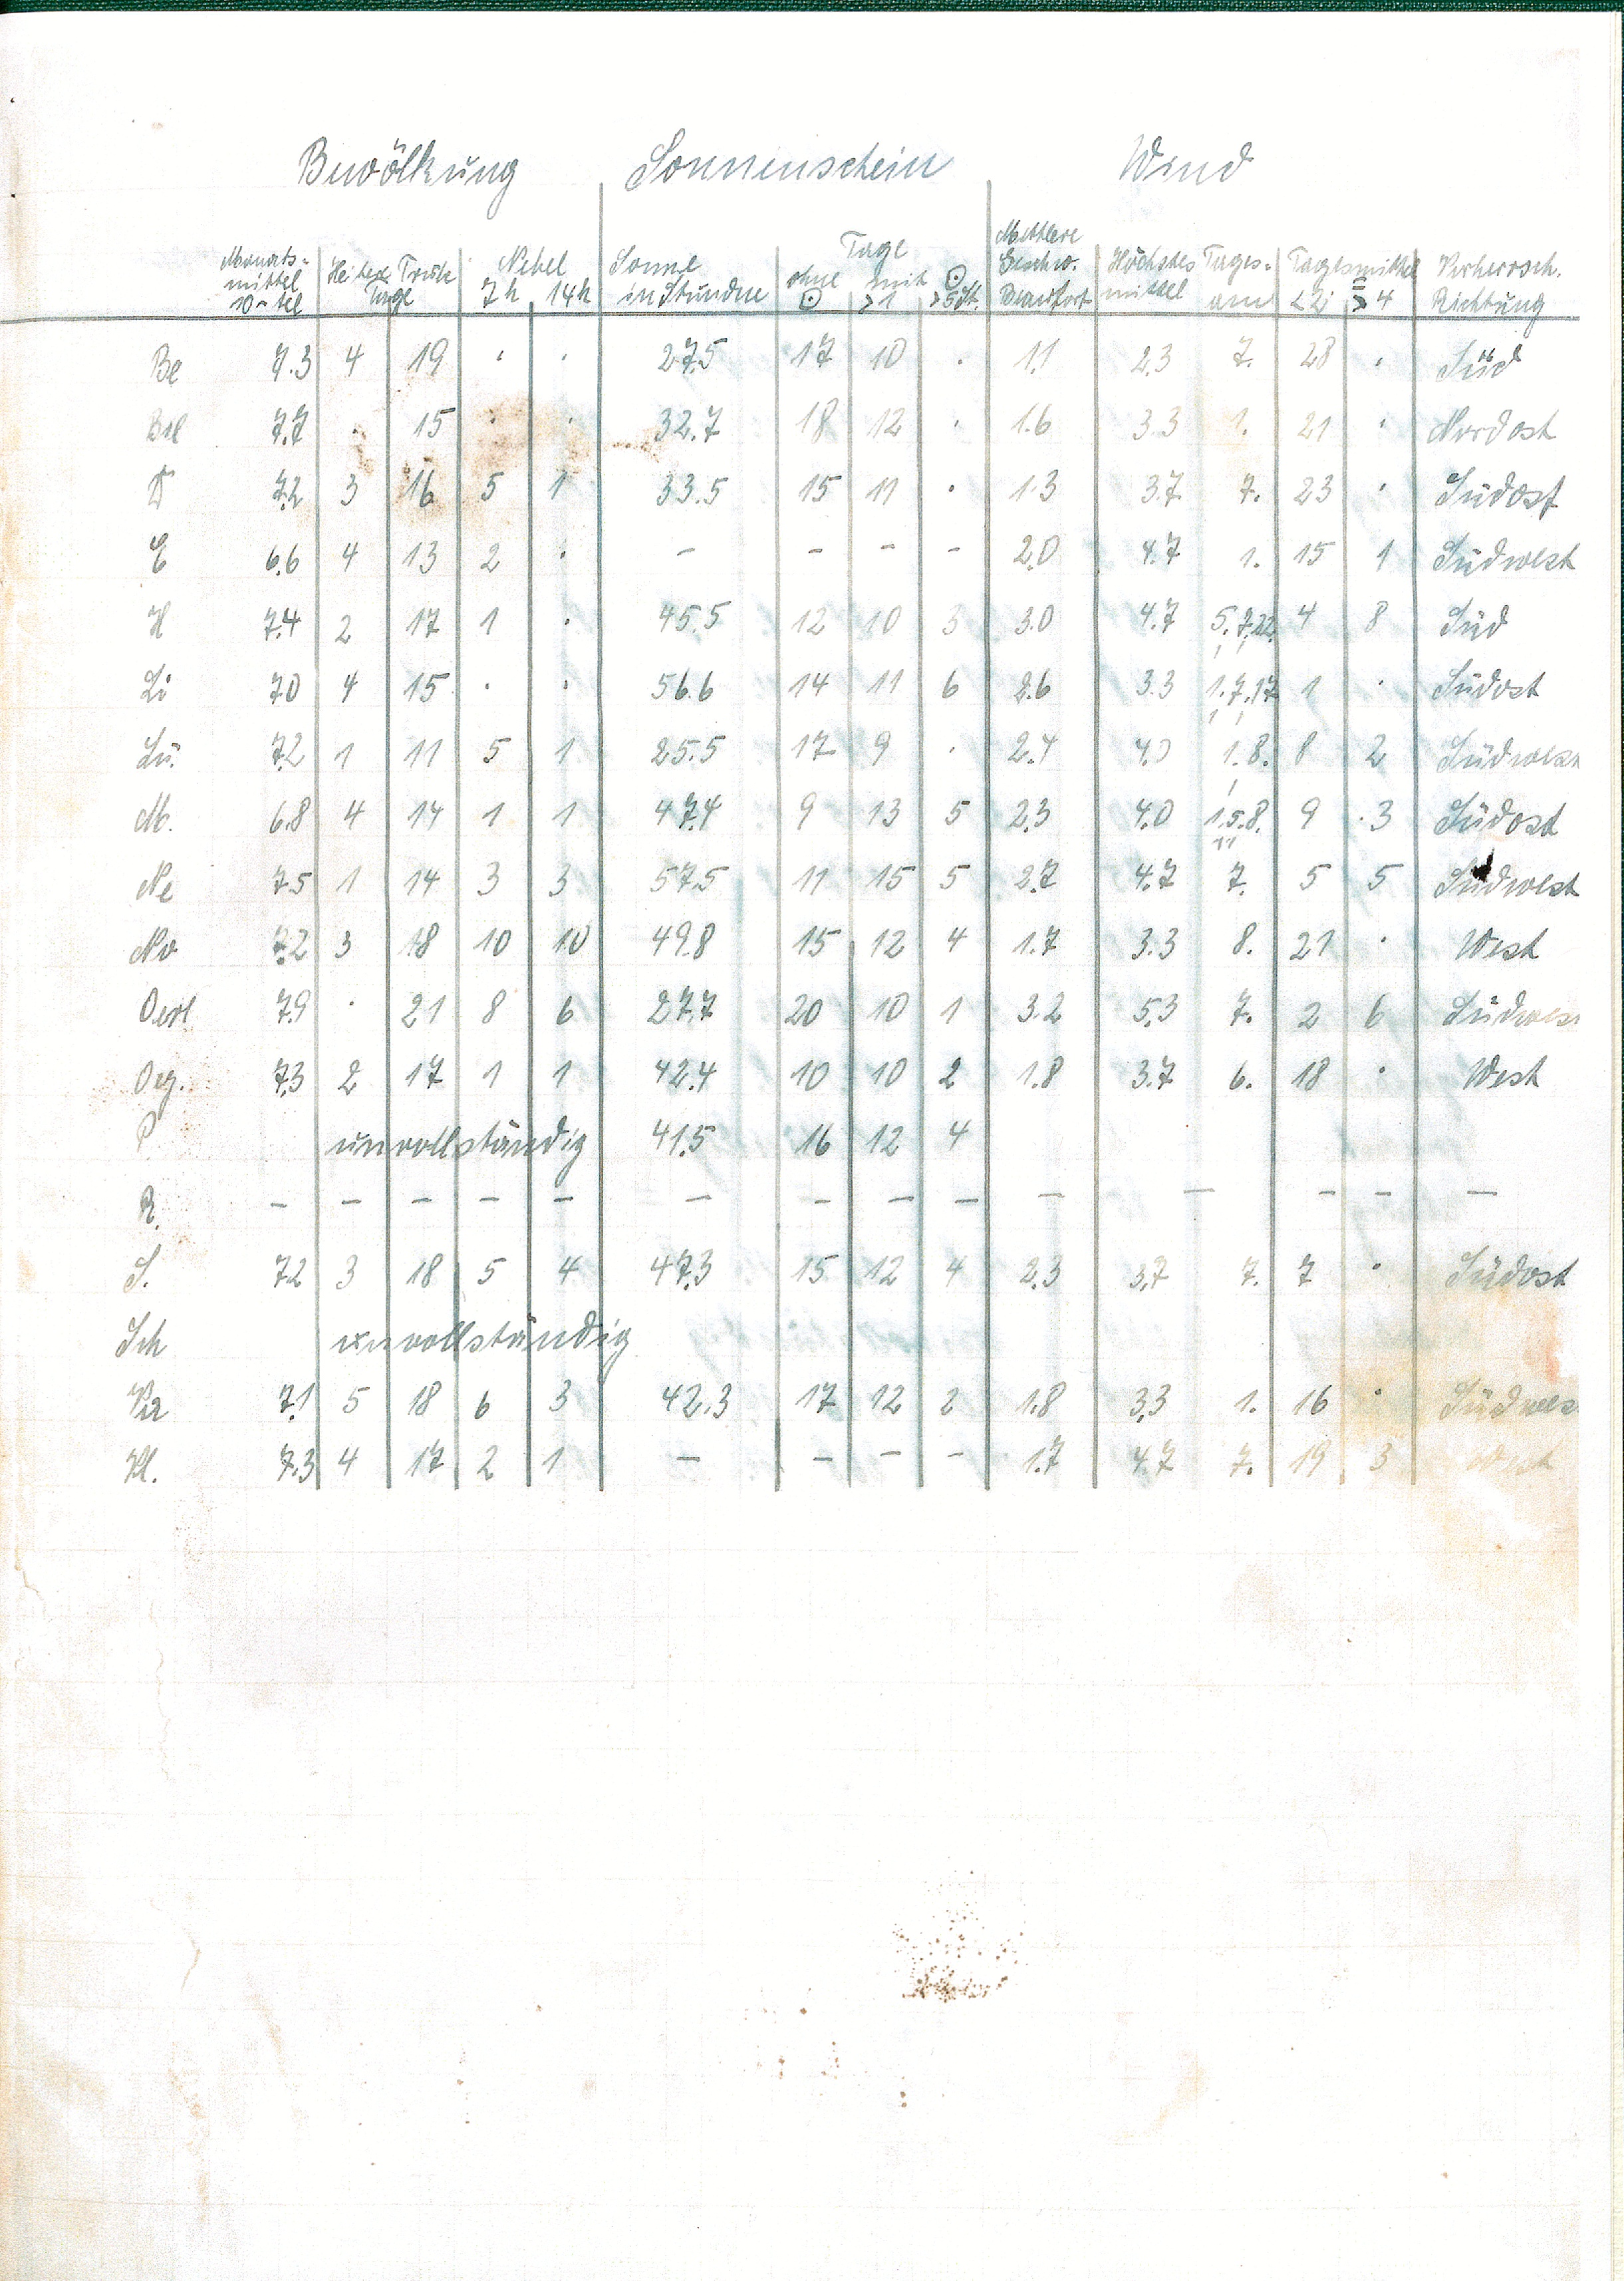 Bewölkung Sonnenschein Wind
Monats- mittel 10-tel Heitere Trübe Tage Nebel 7h 14h Sonne in Stunden Tage ohne ⊙ mit ⊙ >1 >5St. Mittlere Geschw. Beaufort Höchstes Tages- mittel am Tagesmittel <2 ≧4 Vorherrsch. Richtung
Be 7.3 4 19 . . 27.5 17 10 . 1.1 2.3 7. 28 . Süd
Bil 7.7 . 15 . . 32.7 18 12 . 1.6 3.3 1. 21 . Nordost
D 7.2 3 16 5 1 33.5 15 11 . 1.3 3.7 7. 23 . Südost
E 6.6 4 13 2 . – – – – 2.0 4.7 1. 15 1 Südwest
H 7.4 2 17 1 . 45.5 12 10 3 3.0 4.7 5., 7., 22. 4 8 Süd
Li 7.0 4 15 . . 56.6 14 11 6 2.6 3.3 1., 7., 17. 1 . Südost
Lü. 7.2 1 11 5 1 25.5 17 9 . 2.4 4.0 1., 8. 8 2 Südwest
M. 6.8 4 14 1 1 47.4 9 13 5 2.3 4.0 1., 5., 8. 9 3 Südost
Ne 7.5 1 14 3 3 57.5 11 15 5 2.7 4.7 7. 5 5 Südwest
No 7.2 3 18 10 10 49.8 15 12 4 1.7 3.3 8. 21 . West
Oerl 7.9 . 21 8 6 27.7 20 10 1 3.2 5.3 7. 2 6 Südwes
Oeg. 7.3 2 17 1 1 42.4 10 10 2 1.8 3.7 6. 18 . West
P unvollständig 41.5 16 12 4
R. – – – – – – – – – – – – – –
S. 7.2 3 18 5 4 47.3 15 12 4 2.3 3.7 7. 7 . Südost
Sch unvollständig
7.1 5 18 6 3 42.3 17 12 2 1.8 3.3 1. 16 . Südwes
7.3 4 17 2 1 – – – – 1.7 4.7 7. 19 3 West